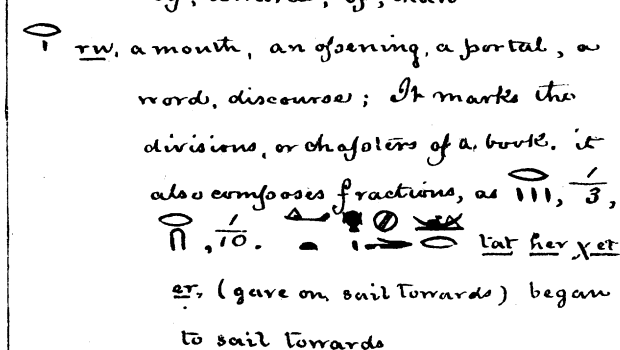 by, towards, of, than
𓂋𓏤 rw. a mouth, an opening, a portal, a
word, discourse; It marks the
divisions, or chapters of a book. it
also composes fractions, as 𓂋𓏼, 1/3,
𓂋𓎆, 1/10. tat her χet
er. (gave on sail towards) began
to sail towards